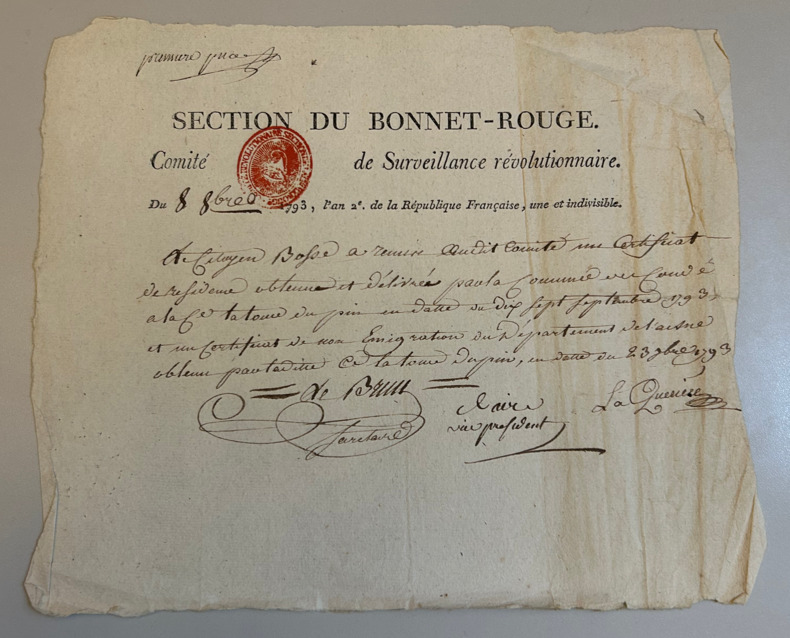 premiere piece
SECTION DU BONNET-ROUGE.
Comité de Surveillance révolutionnaire.
Du 8 8bre 1793, l'an 2e. de la République Française, une et indivisible.
Le Citoyen Bosse a remis audit Comité un Certificat
de residence obtenue et délivrée par la Commune de Condé
a la Ce latour du pin en datte du dix sept septembre 1793
et un Certificat de non Emigration du Département de laisne
obtenu par laditte Ce latour dupin, en datte du 23 7bre 1793
Le Brun
Claire
La Queriere
Secretaire
vice president